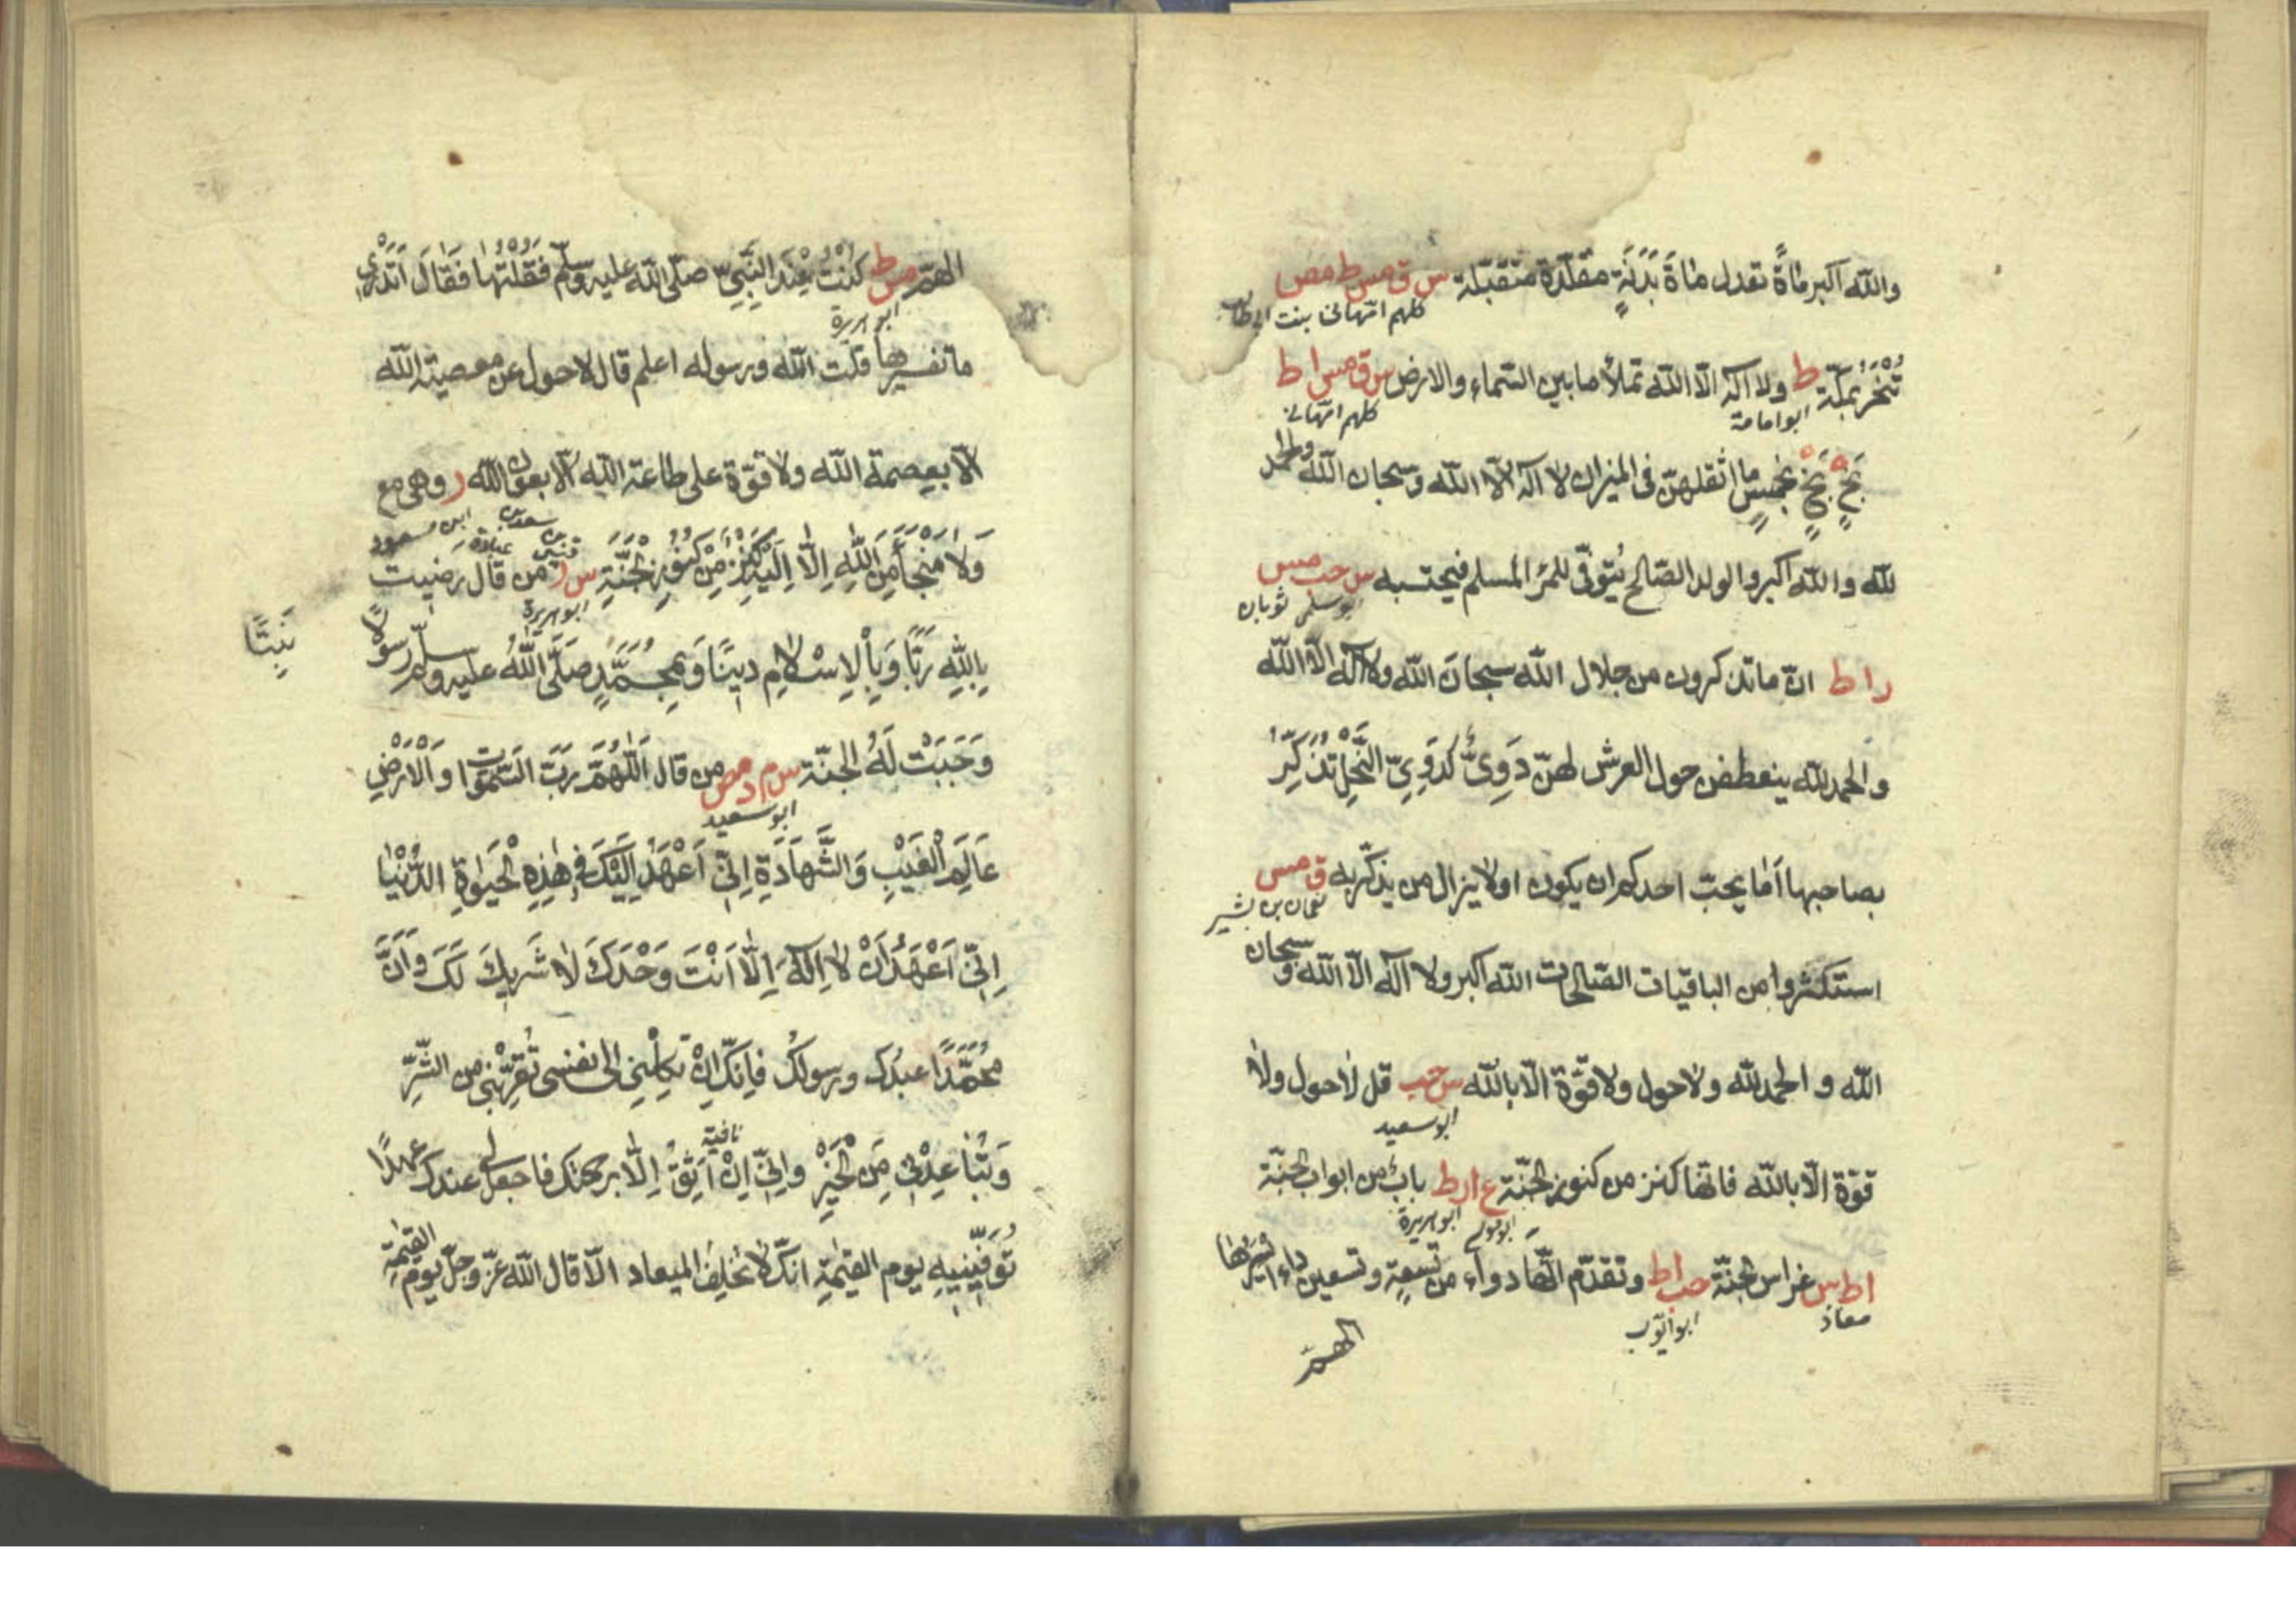 والله اكبر مأةً تعدل مأةَ بَدَنَةٍ مقلّدة متقبّلة س ق مس ط مص
كلهم امّهانى بنت ابى طالب
تُنْحَرُ بمكّة ط ولا اله الّا الله تملأ ما بين السّماء والارض س ق مس ا ط
ابو امامة كلهم امّهانى
بَخٍ بَخٍ بخمسٍ ما اثقلهنّ فى الميزان لا اله الّا الله وسبحان الله والحمد
لله والله اكبر والولد الصّالح يُتوفّى للمرْ المسلم فيحتسبه س حب مس
ابو سلمى ثوبان
ر ا ط انّ ما تذكرون من جلال الله سبحان الله ولا اله الّا الله
والحمد لله ينعطفن حول العرش لهنّ دَوِىٌّ كدَوِىِّ النَّحْلِ تُذَكِّرُ
بصاحبها اَما يحبّ احدكم ان يكون او لا يزال من يذكّر به ق مس
نعمان بن بشير
استكثروا من الباقيات الصّالحات الله اكبر ولا اله الّا الله وسبحان
الله و الحمد لله ولا حول ولا قوّة الّا بالله س حب قل لا حول ولا
ابو سعيد
قوّة الّا بالله فانّها كنز من كنوز الجنّة ع ا ر ط بابٌ من ابواب الجنّة
ابو موسى ابو هريرة
ا ط س غراس الجنّة حب ا ط وتقدّم انّها دواء من تسعةٍ وتسعين داء ايسرُها
معاذ ابو ايّوب
الهمّ
الهمّ مس ط كُنْتُ عِنْدَ النَّبِىّ صلّى الله عليه وسلّم فَقُلْتُهَا فَقَالَ اَتَدْرِى
ابو هريرة
ما تفسيرها قلت الله ورسوله اعلم قال لا حول عن معصية الله
الّا بعصمة الله ولا قوّة على طاعة الله الّا بعون الله ر وهى مع
ابن مسعود
وَلَا مَنْجَأَ مِنَ اللهِ اِلَّا اِلَيْهِ كَنْزٌ مِنْ كُنُوزِ الْجَنَّةِ س ر من قال رضيت
قيس بن سعد بن عبادة ابو هريرة
بِاللهِ رَبًّا وَبِالْاِسْلَامِ دِينًا وَبِمُحَمَّدٍ صَلَّى اللهُ عليه وسلّم رسولًا
نَبِيًّا
وَجَبَتْ لَهُ الجنّة س م د مص من قال اَللّٰهُمَّ رَبَّ السَّمٰوَاتِ وَالْاَرْضِ
ابو سعيد
عَالِمَ الْغَيْبِ وَالشَّهَادَةِ اِنِّى اَعْهَدُ اِلَيْكَ فِى هٰذِهِ الْحَيٰوةِ الدُّنْيَا
اِنِّى اَعْهَدُ اَنْ لَا اِلٰهَ اِلَّا اَنْتَ وَحْدَكَ لَا شَرِيكَ لَكَ وَاَنَّ
مُحَمَّدًا عبدُك ورسولُك فَاِنَّكَ اِنْ تَكِلْنِى الى نفسى تُقَرِّبْنِى من الشَّرِّ
وَتُبَاعِدْنِى مِنَ الْخَيْرِ وَاِنِّى اِنْ اَثِقُ اِلَّا برحمتك فاجعل لى عندك عهدًا
نافية
تُوَفِّينِيهِ يوم القيٰمة انّك لا تُخلِفُ الميعاد الّا قال الله عزّ وجلّ يوم القيٰمة